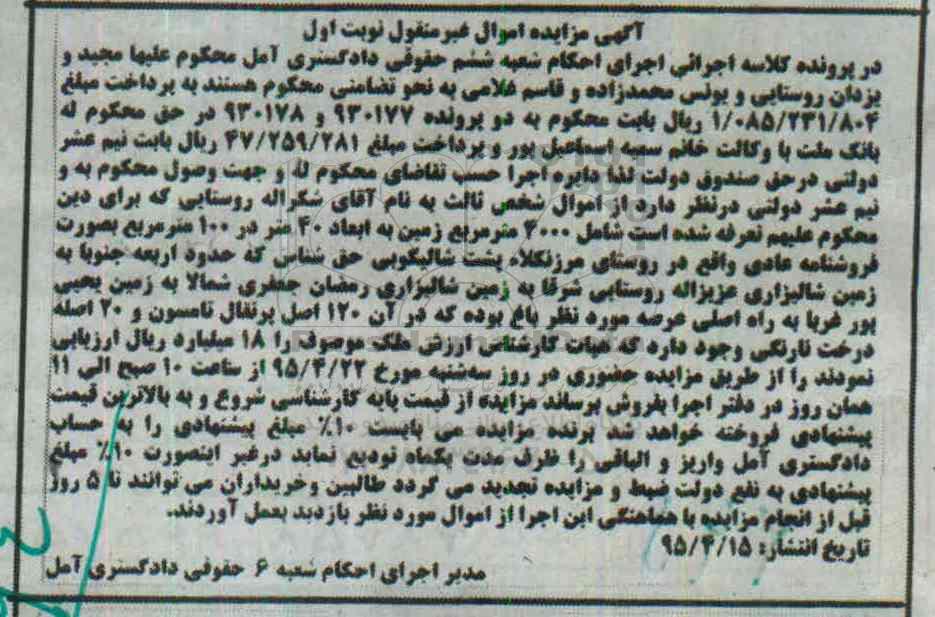 آگهی مزایده اموال غیر منقول نوبت اول
در پرونده کلاسه اجرائی اجرای احکام شعبه ششم حقوقی دادگستری آمل محکوم علیها مجید و
یزدان روستایی و یونس محمدزاده و قاسم غلامی به نحو تضامنی محکوم هستند به پرداخت مبلغ
۱/۰۸۵/۲۳۱/۸۰۴ ریال بابت محکوم به دو پرونده ۹۳۰۱۷۷ و ۹۳۰۱۷۸ در حق محکوم له
بانک ملت با وکالت خانم سمیه اسماعیل پور و پرداخت مبلغ ۴۷/۲۵۹/۲۸۱ ریال بابت نیم عشر
دولتی درحق صندوق دولت لذا دایره اجرا حسب تقاضای محکوم له و جهت وصول محکوم به و
نیم عشر دولتی درنظر دارد از اموال شخص ثالث به نام آقای شکراله روستایی که برای دین
محکوم علیهم تعرفه شده است شامل ۴۰۰۰ مترمربع زمین به ابعاد ۴۰ متر در ۱۰۰ مترمربع بصورت
فروشنامه عادی واقع در روستای مرزنکلاه پشت شالیکوبی حق شناس که حدود اربعه جنوبا به
زمین شالیزاری عزیزاله روستایی شرقا به زمین شالیزاری رمضان جعفری شمالا به زمین یحیی
پور غربا به راه اصلی عرصه مورد نظر باغ بوده که در آن ۱۲۰ اصل پرتقال تامسون و ۲۰ اصله
درخت نارنگی وجود دارد که هیات کارشناسی ارزش ملک موصوف را ۱۸ میلیارد ریال ارزیابی
نمودند را از طریق مزایده حضوری در روز سه‌شنبه مورخ ۹۵/۴/۲۲ از ساعت ۱۰ صبح الی ۱۱
همان روز در دفتر اجرا بفروش برساند مزایده از قیمت پایه کارشناسی شروع و به بالاترین قیمت
پیشنهادی فروخته خواهد شد برنده مزایده می بایست ۱۰٪ مبلغ پیشنهادی را به حساب
دادگستری آمل واریز و الباقی را ظرف مدت یکماه تودیع نماید درغیر اینصورت ۱۰٪ مبلغ
پیشنهادی به نفع دولت ضبط و مزایده تجدید می گردد طالبین وخریداران می توانند تا ۵ روز
قبل از انجام مزایده با هماهنگی این اجرا از اموال مورد نظر بازدید بعمل آوردند.
تاریخ انتشار: ۹۵/۴/۱۵
مدیر اجرای احکام شعبه ۶ حقوقی دادگستری آمل